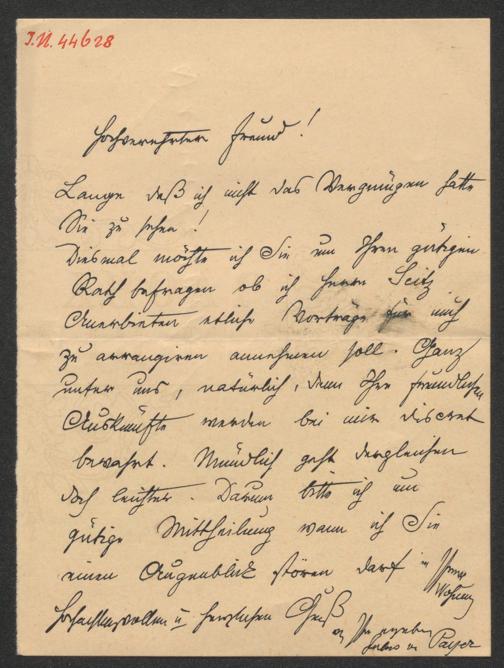 I.N. 44628
Hochverehrter Freund!
Lange daß ich nicht das Vergnügen hatte
Sie zu sehen!
Diesmal möchte ich Sie um Ihren gütigen
Rath befragen ob ich Herrn Seitz
Anerbieten etliche Vorträge für mich
zu arrangiren annehmen soll. Ganz
unter uns, natürlich, denn Ihre freundlichen
Auskünfte werden bei mir discret
bewahrt. Mündlich geht dergleichen
doch leichter. Darum bitte ich um
gütige Mittheilung wann ich Sie
einen Augenblick stören darf in Ihrer
Wohnung
Hochachtungsvollen u herzlichen Gruß
Ihr ergebener
Payer